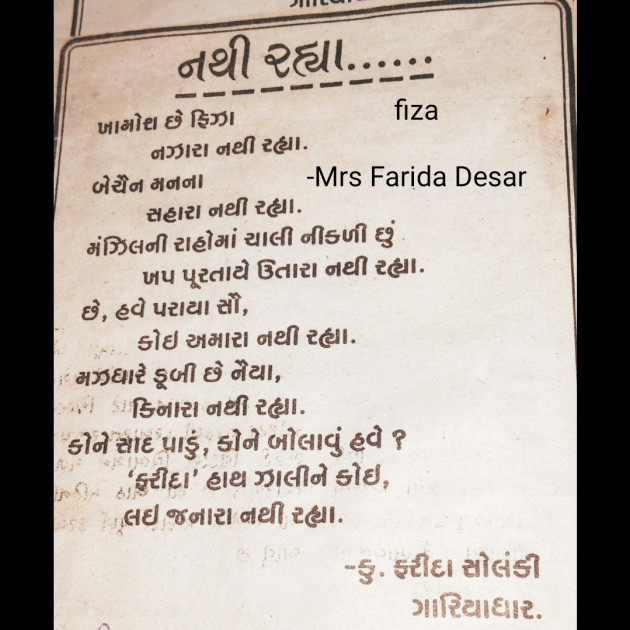 નથી રહ્યા......
fiza
ખામોશ છે ફિઝા
નઝારા નથી રહ્યા.
-Mrs Farida Desar
બેચૈન મનના
સહારા નથી રહ્યા.
મંઝિલની રાહોમાં ચાલી નીકળી છું
ખપ પૂરતાયે ઉતારા નથી રહ્યા.
છે, હવે પરાયા સૌ,
કોઇ અમારા નથી રહ્યા.
મઝધારે ડૂબી છે નૈયા,
કિનારા નથી રહ્યા.
કોને સાદ પાડું, કોને બોલાવું હવે ?
‘ફરીદા’ હાથ ઝાલીને કોઇ,
લઇ જનારા નથી રહ્યા.
-કુ. ફરીદા સોલંકી
ગારિયાધાર.